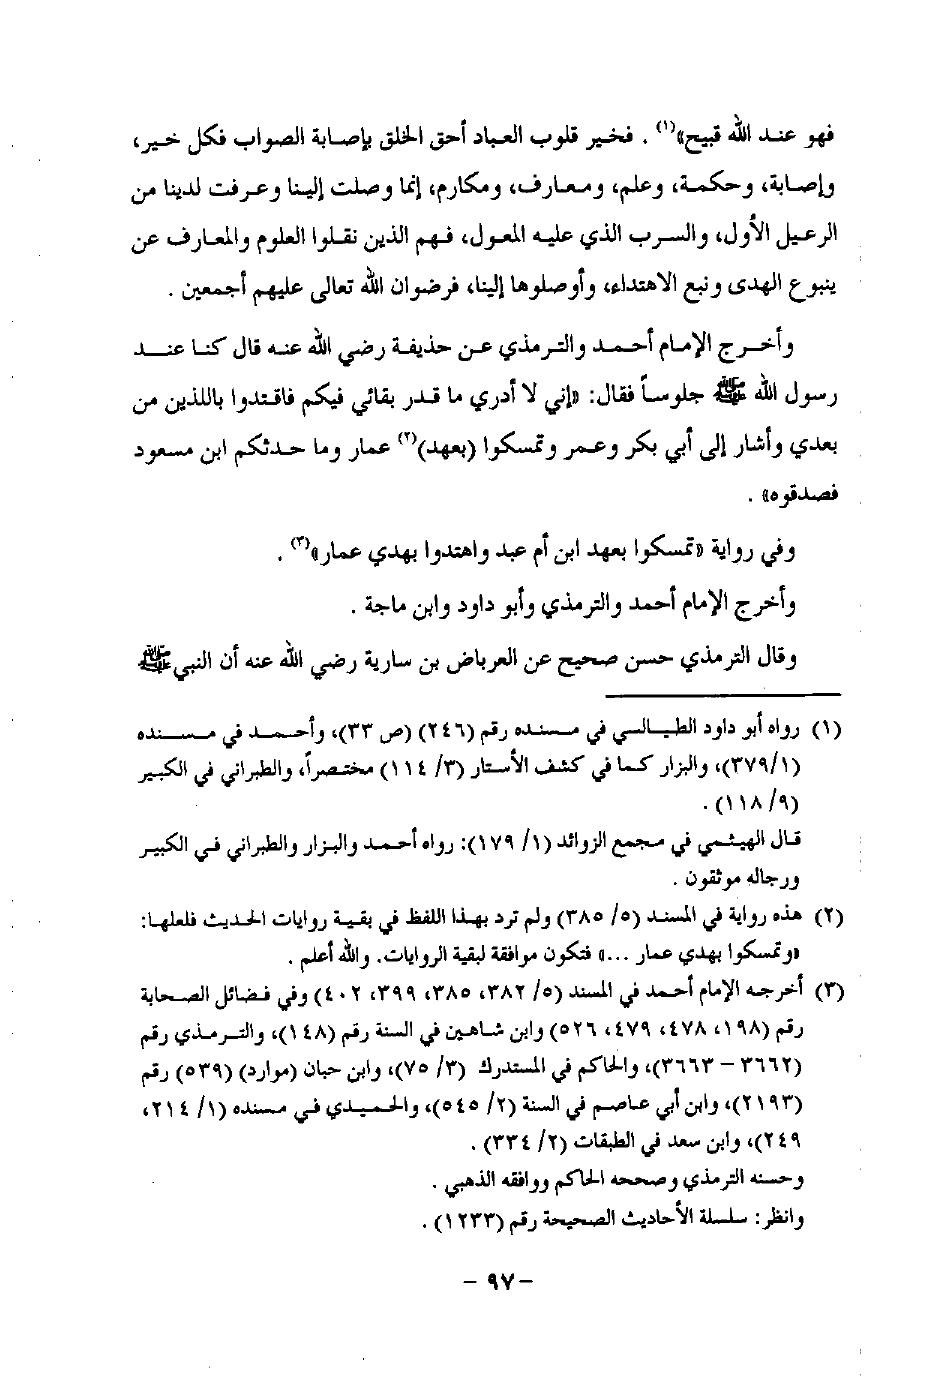 فهو عند الله قبيح»(١) . فخير قلوب العباد أحق الخلق بإصابة الصواب فكل خير،
وإصابة، وحكمة، وعلم، ومعارف، ومكارم، إنما وصلت إلينا وعرفت لدينا من
الرعيل الأول، والسرب الذي عليه المعول، فهم الذين نقلوا العلوم والمعارف عن
ينبوع الهدى ونبع الاهتداء، وأوصلوها إلينا، فرضوان الله تعالى عليهم أجمعين .
وأخرج الإمام أحمد والترمذي عن حذيفة رضي الله عنه قال كنا عند
رسول الله ﷺ جلوساً فقال: «إني لا أدري ما قدر بقائي فيكم فاقتدوا باللذين من
بعدي وأشار إلى أبي بكر وعمر وتمسكوا (بعهد)(٢) عمار وما حدثكم ابن مسعود
فصدقوه» .
وفي رواية «تمسكوا بعهد ابن أم عبد واهتدوا بهدي عمار»(٣) .
وأخرج الإمام أحمد والترمذي وأبو داود وابن ماجة .
وقال الترمذي حسن صحيح عن العرباض بن سارية رضي الله عنه أن النبي ﷺ
(١) رواه أبو داود الطيالسي في مسنده رقم (٢٤٦) (ص ٣٣)، وأحمد في مسنده
(٣٧٩/١)، والبزار كما في كشف الأستار (٣/ ١١٤) مختصراً، والطبراني في الكبير
(٩/ ١١٨) .
قال الهيثمي في مجمع الزوائد (١/ ١٧٩): رواه أحمد والبزار والطبراني في الكبير
ورجاله موثقون .
(٢) هذه رواية في المسند (٥/ ٣٨٥) ولم ترد بهذا اللفظ في بقية روايات الحديث فلعلها:
«وتمسكوا بهدي عمار ...» فتكون موافقة لبقية الروايات. والله أعلم .
(٣) أخرجه الإمام أحمد في المسند (٥/ ٣٨٢، ٣٨٥، ٣٩٩، ٤٠٢) وفي فضائل الصحابة
رقم (١٩٨، ٤٧٨، ٤٧٩، ٥٢٦) وابن شاهين في السنة رقم (١٤٨)، والترمذي رقم
(٣٦٦٢ – ٣٦٦٣)، والحاكم في المستدرك (٣/ ٧٥)، وابن حبان (موارد) (٥٣٩) رقم
(٢١٩٣)، وابن أبي عاصم في السنة (٢/ ٥٤٥)، والحميدي في مسنده (١/ ٢١٤،
٢٤٩)، وابن سعد في الطبقات (٢/ ٣٣٤) .
وحسنه الترمذي وصححه الحاكم ووافقه الذهبي .
وانظر: سلسلة الأحاديث الصحيحة رقم (١٢٣٣) .
– ٩٧ –